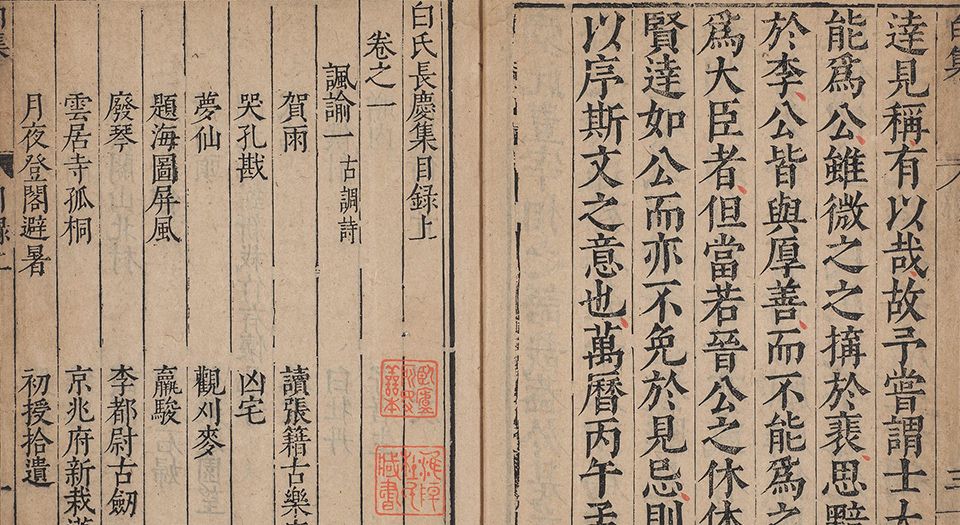 白集 三
達見稱有以哉故予嘗謂士大
能爲公雖微之之搆於裴思黯
於李公皆與厚善而不能爲之
爲大臣者但當若晉公之休休
賢達如公而亦不免於見忌則
以序斯文之意也萬曆丙午孟
白氏長慶集目録上
卷之一
諷諭一 古調詩
賀雨 讀張籍古樂
哭孔戡 凶宅
夢仙 觀刈麥
題海圖屏風 羸駿
廢琴 李都尉古劒
雲居寺孤桐 京兆府新栽
月夜登閣避暑 初授拾遺